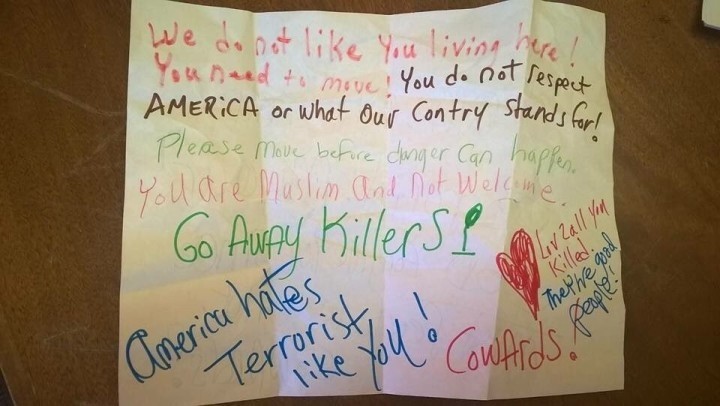 We do not like You living here!
You need to move! You do not respect
AMERiCA or what Our Contry Stands for!
Please move before danger Can happen.
You are Muslim And Not Welcome.
Go AwAy KillerS!
America hates
Terrorist
like You!
Luv 2 all You
Killed.
They're good
people!
CowArds!